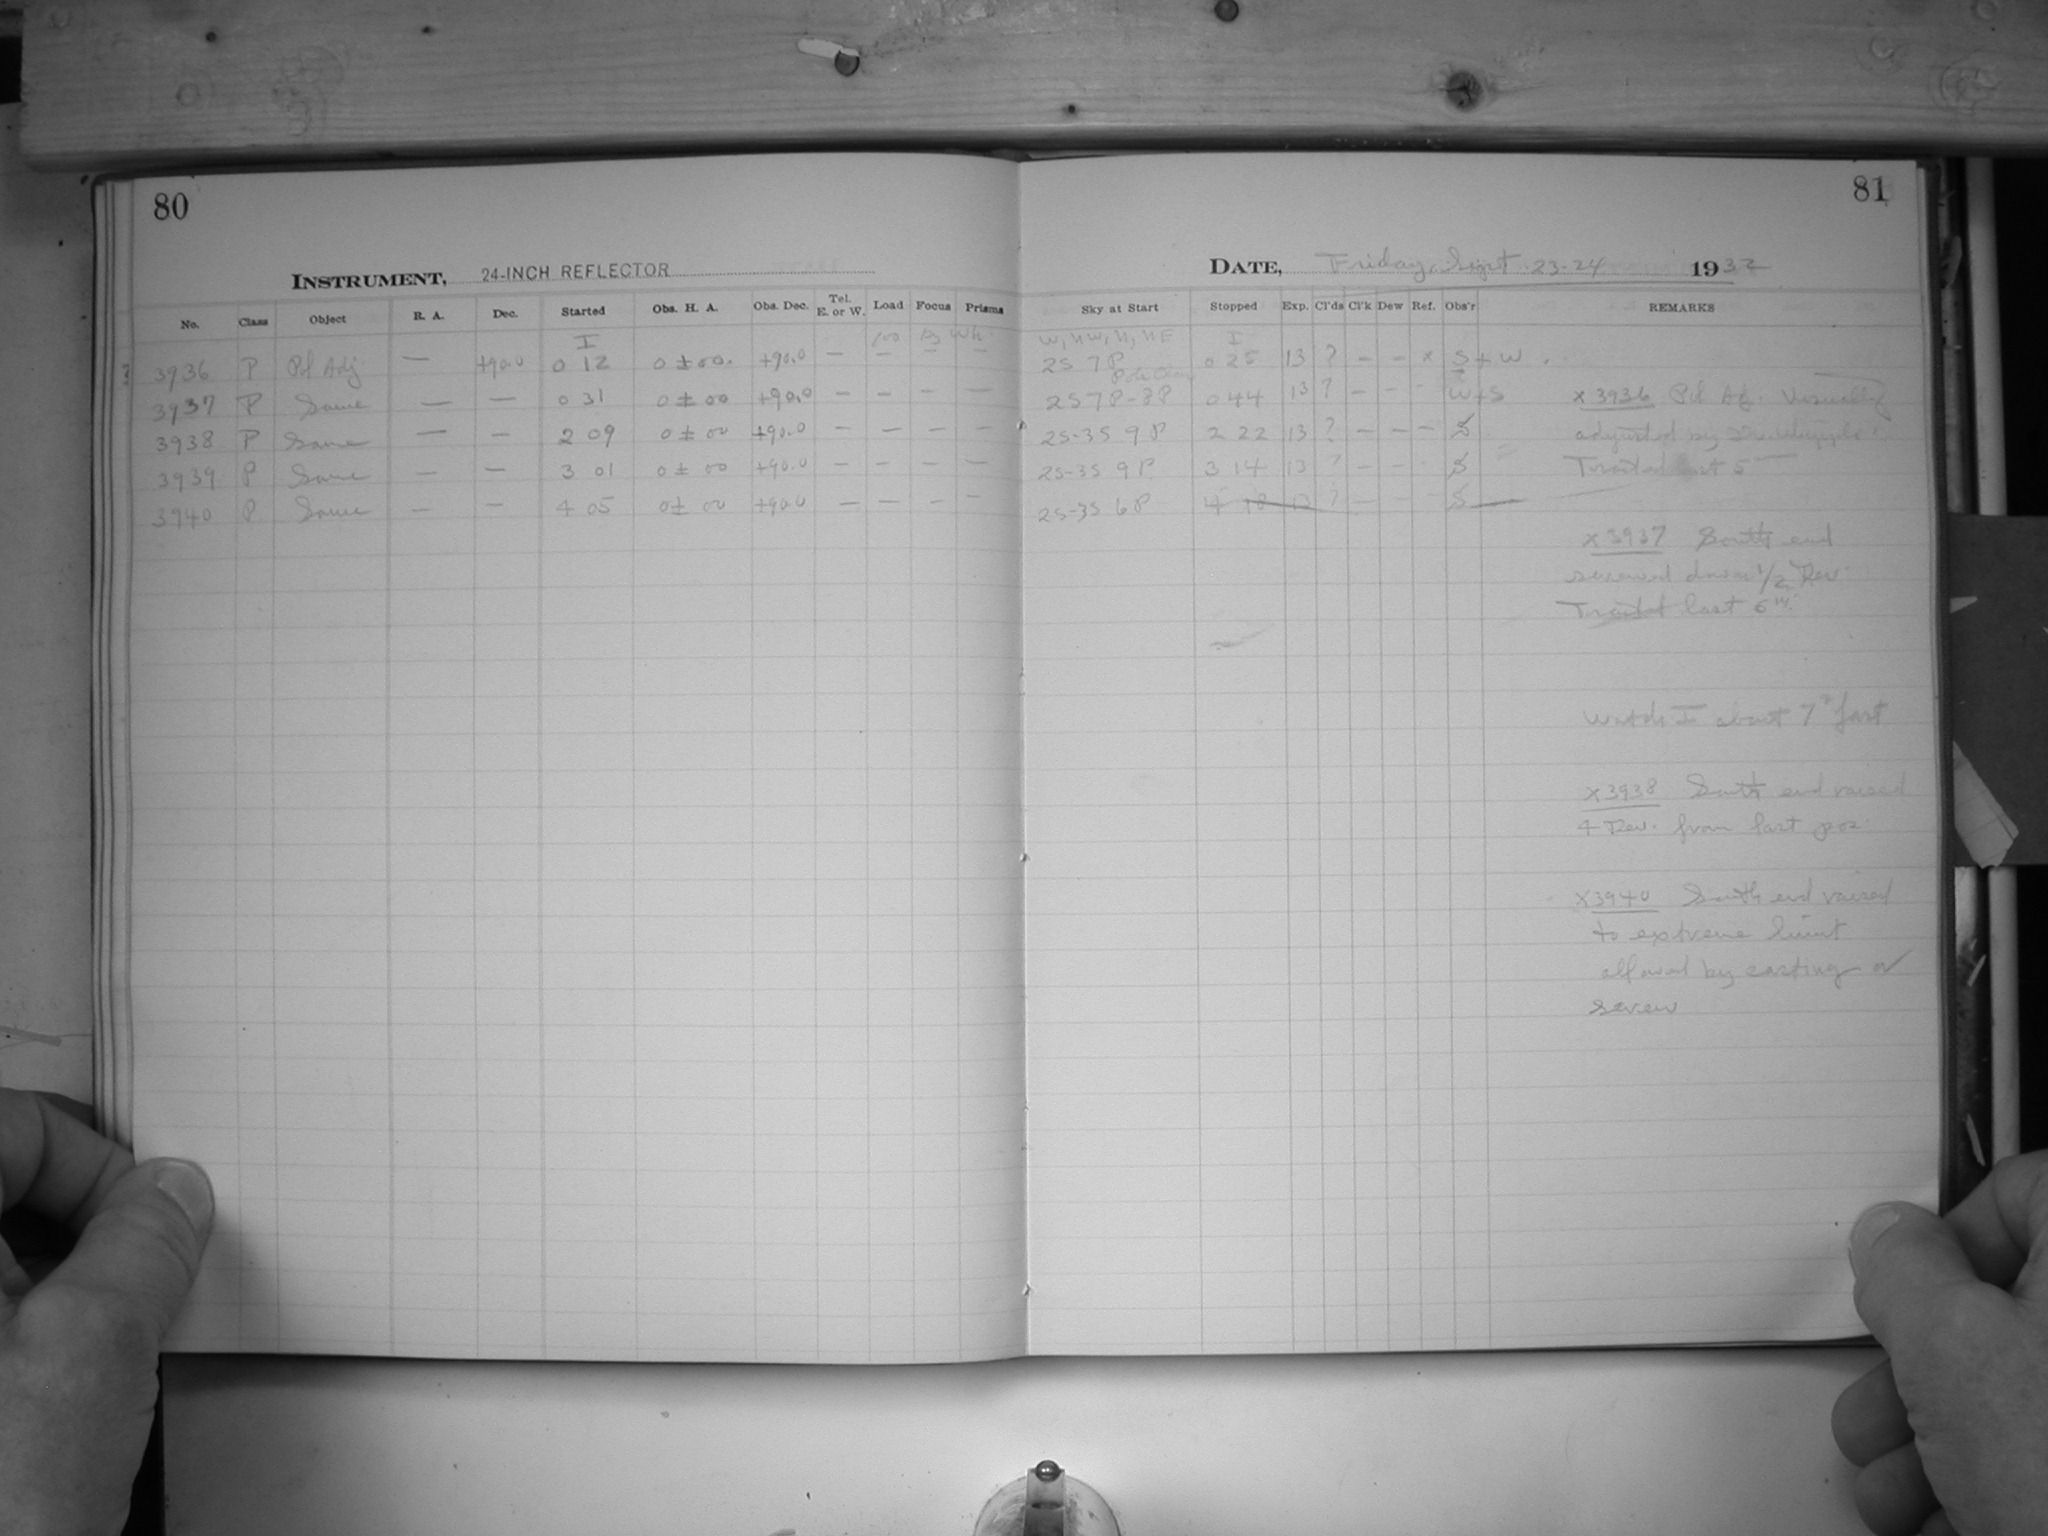 80
INSTRUMENT, 24-INCH REFLECTOR
No. Class Object R. A. Dec. Started Obs. H. A. Obs. Dec. Tel. E. or W. Load Focus Prisms
I 100
3936 P Pol Adj. — +90.0 0 12 0 ± 00. +90.0 — — — —
3937 P Same — — 0 31 0 ± 00 +90.0 — — — —
3938 P Same — — 2 09 0 ± 00 +90.0 — — — —
3939 P Same — — 3 01 0 ± 00 +90.0 — — — —
3940 P Same — — 4 05 0 ± 00 +90.0 — — — —
81
DATE, Friday, Sept 23-24 1932
Sky at Start Stopped Exp. Cl'ds Cl'k Dew Ref. Obs'r REMARKS
W, NW, N, NE I
2S 7P 0 25 13 ? — — x S + W.
2S 7P-8P 0 44 13 ? — - - W+S
2S-3S 9P 2 22 13 ? — — — S
2S-3S 9P 3 14 13 ? — — S
2S-3S 6P 4 18 13 ? — S
x 3936 Pol Adj. Visually
adjusted by
last 5
x 3937 South end
screwed down 1/2 Rev.
last 5
Watch I about 7 fast
x 3938 South end raised
4 Rev. from last pos.
x 3940 South end raised
to extreme limit
allowed by casting or
screw